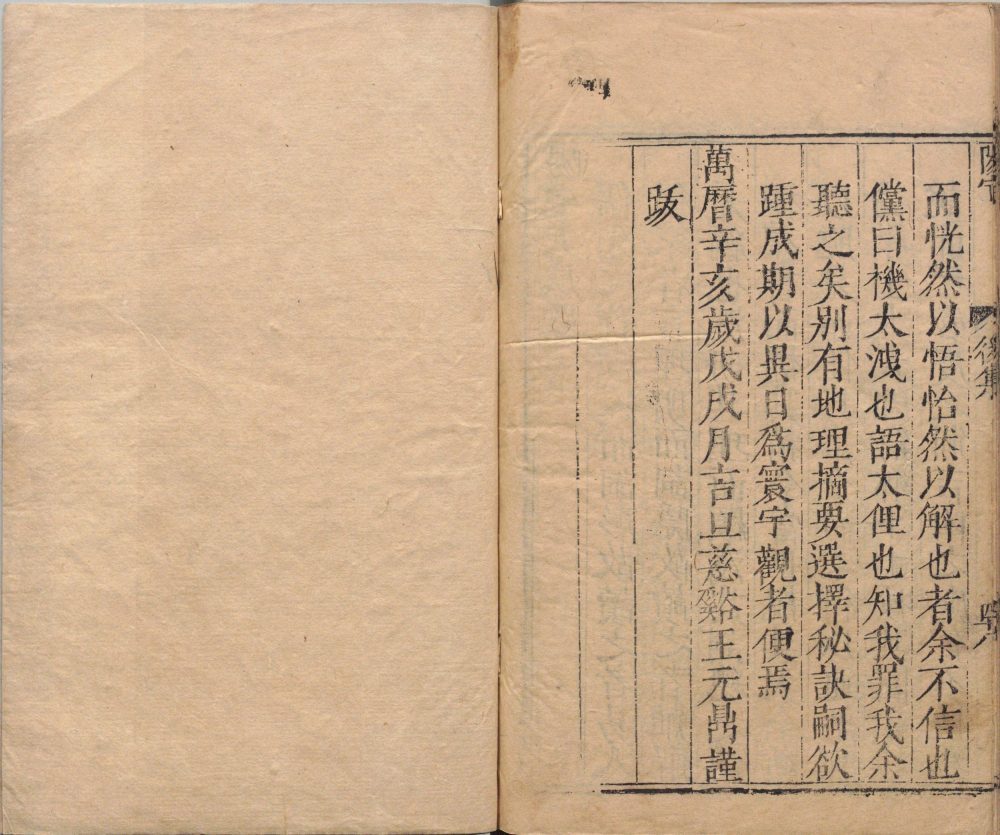 後集
而恍然以悟怡然以解也者余不信也
儻曰機太洩也語太俚也知我罪我余
聽之矣別有地理摘要選擇秘訣嗣欲
踵成期以異日爲寰宇觀者便焉
萬曆辛亥歲戊戌月吉旦慈谿王元鼎謹
跋